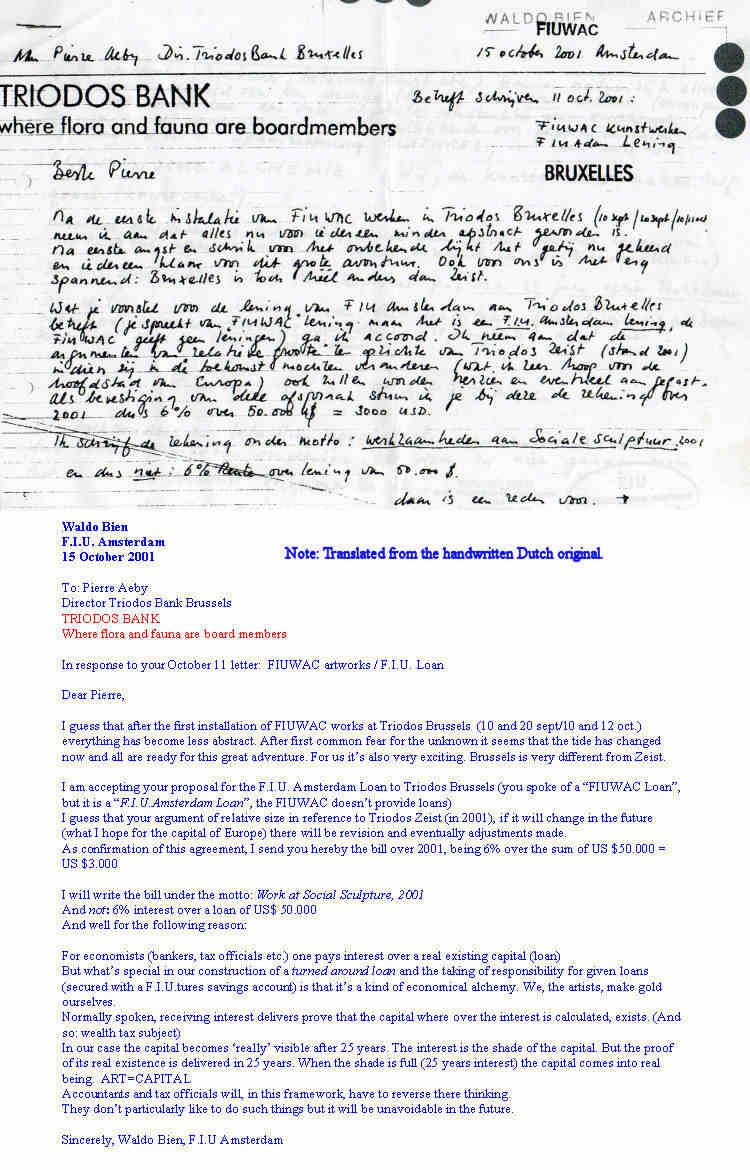 WALDO BIEN ARCHIEF
FIUWAC
Mr Pierre Aeby Dir. Triodos Bank Bruxelles 15 october 2001 Amsterdam
TRIODOS BANK
where flora and fauna are boardmembers
Betreft schrijven 11 oct. 2001:
FIUWAC Kunstwerken
FIU Adam Lening
BRUXELLES
Beste Pierre
Na de eerste instalatie van FIUWAC werken in Triodos Bruxelles
neem ik aan dat alles nu voor iedereen minder abstract geworden is.
Na eerste angst en schrik voor het onbekende lijkt het getij nu gekeerd
en iedereen klaar voor dit grote avontuur. Ook voor ons is het erg
spannend: Bruxelles is toch héél anders dan Zeist.
Wat je voorstel voor de lening van FIU Amsterdam aan Triodos Bruxelles
betreft (je spreekt van "FIUWAC" lening maar het is een F.I.U. Amsterdam lening, de
FIUWAC geeft geen leningen) ga ik accoord. Ik neem aan dat de
argumenten van relatieve grootte ten opzichte van Triodos Zeist (stand 2001)
indien zij in de toekomst mochten veranderen (wat ik zeer hoop voor de
hoofdstad van Europa) ook zullen worden herzien en eventueel aangepast.
Als bevestiging van deze afspraak stuur ik je bij deze de rekening over
2001 dus 6% over 50.000 U$ = 3000 USD.
Ik schrijf de rekening onder motto: werkzaamheden aan Sociale Sculptuur, 2001
en dus niet: 6% Rente over lening van 50.000 $.
daar is een reden voor. →
Waldo Bien
F.I.U. Amsterdam
15 October 2001
Note: Translated from the handwritten Dutch original.
To: Pierre Aeby
Director Triodos Bank Brussels
TRIODOS BANK
Where flora and fauna are board members
In response to your October 11 letter: FIUWAC artworks / F.I.U. Loan
Dear Pierre,
I guess that after the first installation of FIUWAC works at Triodos Brussels (10 and 20 sept/10 and 12 oct.)
everything has become less abstract. After first common fear for the unknown it seems that the tide has changed
now and all are ready for this great adventure. For us it's also very exciting. Brussels is very different from Zeist.
I am accepting your proposal for the F.I.U. Amsterdam Loan to Triodos Brussels (you spoke of a “FIUWAC Loan”,
but it is a “F.I.U.Amsterdam Loan”, the FIUWAC doesn't provide loans)
I guess that your argument of relative size in reference to Triodos Zeist (in 2001), if it will change in the future
(what I hope for the capital of Europe) there will be revision and eventually adjustments made.
As confirmation of this agreement, I send you hereby the bill over 2001, being 6% over the sum of US $50.000 =
US $3.000
I will write the bill under the motto: Work at Social Sculpture, 2001
And not: 6% interest over a loan of US$ 50.000
And well for the following reason:
For economists (bankers, tax officials etc.) one pays interest over a real existing capital (loan)
But what's special in our construction of a turned around loan and the taking of responsibility for given loans
(secured with a F.I.U.tures savings account) is that it's a kind of economical alchemy. We, the artists, make gold
ourselves.
Normally spoken, receiving interest delivers prove that the capital where over the interest is calculated, exists. (And
so: wealth tax subject)
In our case the capital becomes ‘really’ visible after 25 years. The interest is the shade of the capital. But the proof
of its real existence is delivered in 25 years. When the shade is full (25 years interest) the capital comes into real
being. ART=CAPITAL
Accountants and tax officials will, in this framework, have to reverse there thinking.
They don't particularly like to do such things but it will be unavoidable in the future.
Sincerely, Waldo Bien, F.I.U Amsterdam